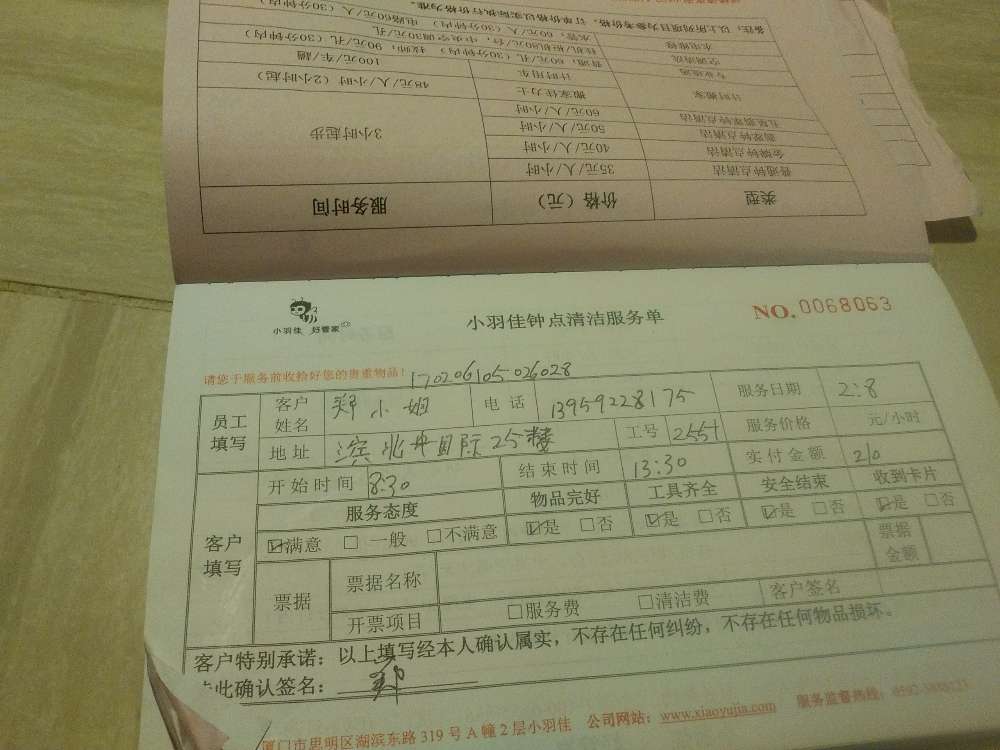 备注：以上所列项目为参考价格，订单价格以实际执行价格为准。
水电维修 水管，60元/人（30分钟内） 电路60元/人（30分钟内）
空调清洗 挂机/柜机80元/台，中央空调30元/孔
普通，60元/孔（30分钟内） 技师，90元/孔（30分钟内）
计时搬家 计时用车 100元/车/趟
搬家佳力士 48元/人/小时（2小时起）
60元/小时
翡翠钟点清洁 50元/人/小时
金牌钟点清洁 40元/人/小时
普通钟点清洁 35元/人/小时
3小时起步
类型 价格（元） 服务时间
小羽佳 好管家
小羽佳钟点清洁服务单
NO.0068063
请您于服务前收拾好您的贵重物品！
170206105026028
员工填写 客户姓名 郑小姐 电话 13959228175 服务日期 2:8
地址 滨北 国际25楼 工号 2551 服务价格 元/小时
客户填写 开始时间 8:30 结束时间 13:30 实付金额 210
服务态度 物品完好 工具齐全 安全结束 收到卡片
☑满意 □一般 □不满意 ☑是 □否 ☑是 □否 ☑是 □否 ☑是 □否
票据 票据名称 票据金额
开票项目 □服务费 □清洁费 客户签名
客户特别承诺：以上填写经本人确认属实，不存在任何纠纷，不存在任何物品损坏。
此确认签名： 郑
厦门市思明区湖滨东路319号A幢2层小羽佳 公司网站：www.xiaoyujia.com 服务监督热线：